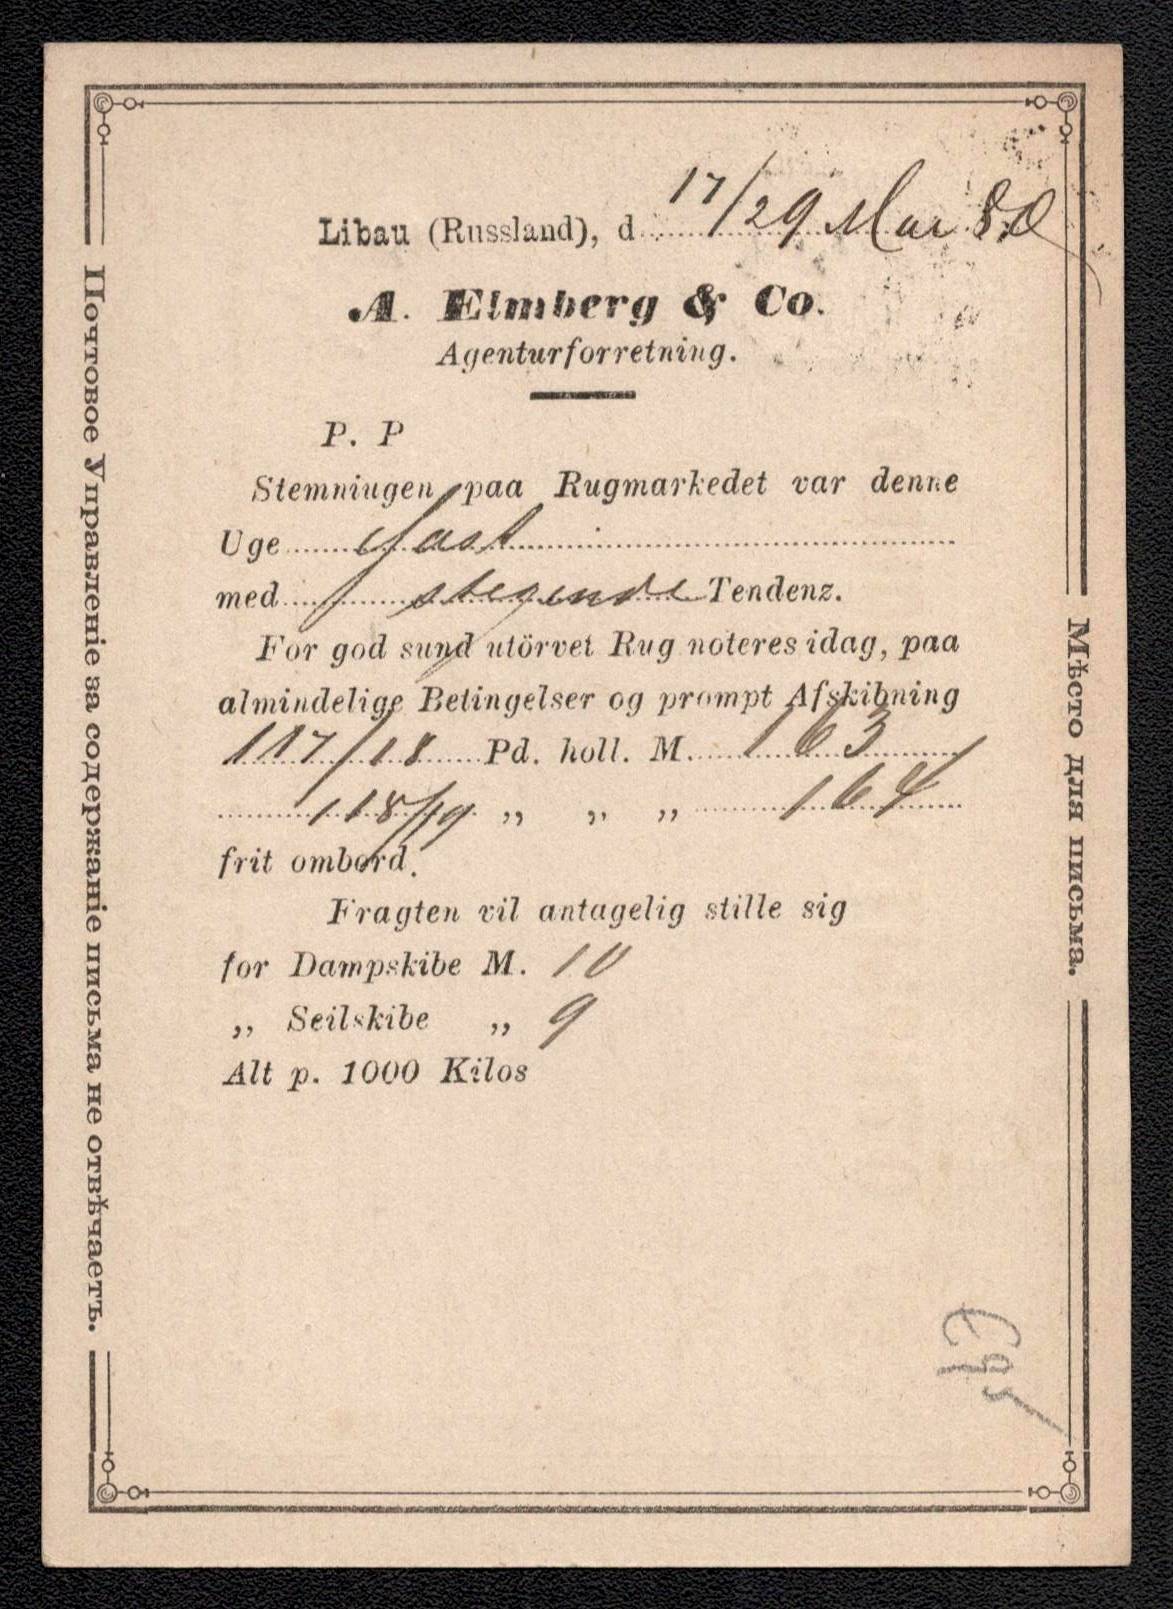 Libau (Russland), d 17/29 Mar 80
A. Elmberg & Co.
Agenturforretning.
P. P
Stemningen paa Rugmarkedet var denne
Uge fast
med stegende Tendenz.
For god sund utörvet Rug noteres idag, paa
almindelige Betingelser og prompt Afskibning
117/18 Pd. holl. M. 163
118/19 „ „ „ 164
frit ombord.
Fragten vil antagelig stille sig
for Dampskibe M. 10
„ Seilskibe „ 9
Alt p. 1000 Kilos
Почтовое Управленіе за содержаніе письма не отвѣчаетъ.
Мѣсто для письма.